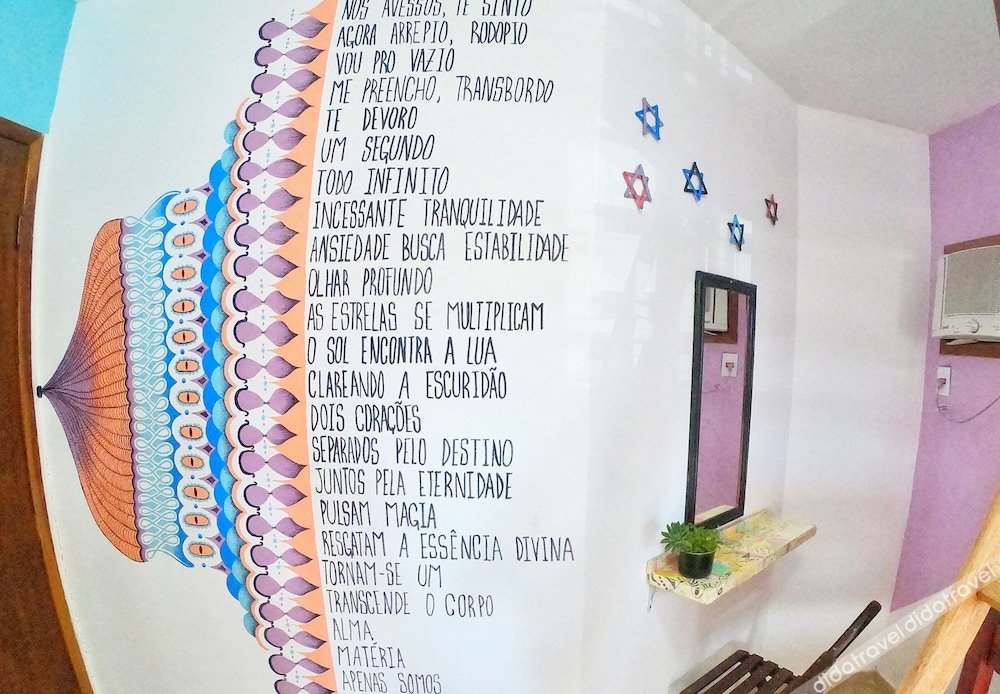 NOS AVESSOS, TE SINTO
AGORA ARREPIO, RODOPIO
VOU PRO VAZIO
ME PREENCHO, TRANSBORDO
TE DEVORO
UM SEGUNDO
TODO INFINITO
INCESSANTE TRANQUILIDADE
ANSIEDADE BUSCA ESTABILIDADE
OLHAR PROFUNDO
AS ESTRELAS SE MULTIPLICAM
O SOL ENCONTRA A LUA
CLAREANDO A ESCURIDÃO
DOIS CORAÇÕES
SEPARADOS PELO DESTINO
JUNTOS PELA ETERNIDADE
PULSAM MAGIA
RESGATAM A ESSÊNCIA DIVINA
TORNAM-SE UM
TRANSCENDE O CORPO
ALMA
MATÉRIA
APENAS SOMOS
didatravel didatravel